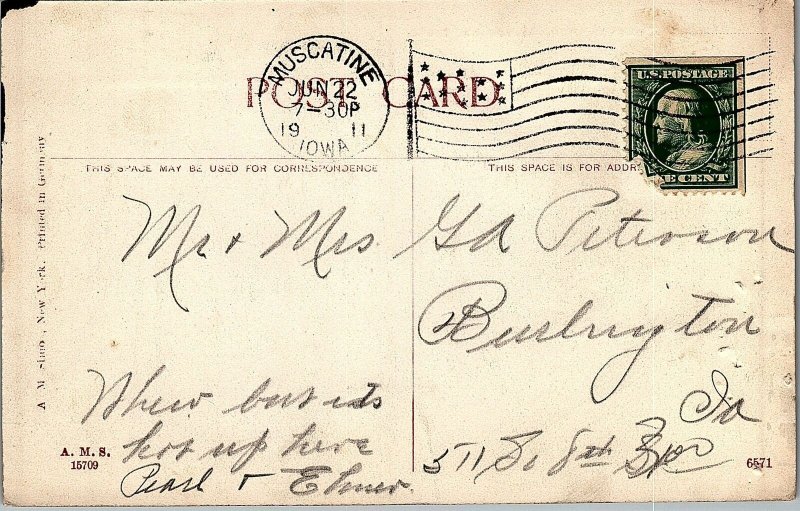 MUSCATINE
JUN 22
7-30P
19 11
IOWA
POST CARD
U.S. POSTAGE
CENT
THIS SPACE MAY BE USED FOR CORRESPONDENCE
THIS SPACE IS FOR ADDR
Mr + Mrs G A Peterson
Burlington
Ia
511 So 8th
Whew but its
hot up here
Pearl + Elmer.
A. M. S.
15709
6571
New York. Printed in Germany